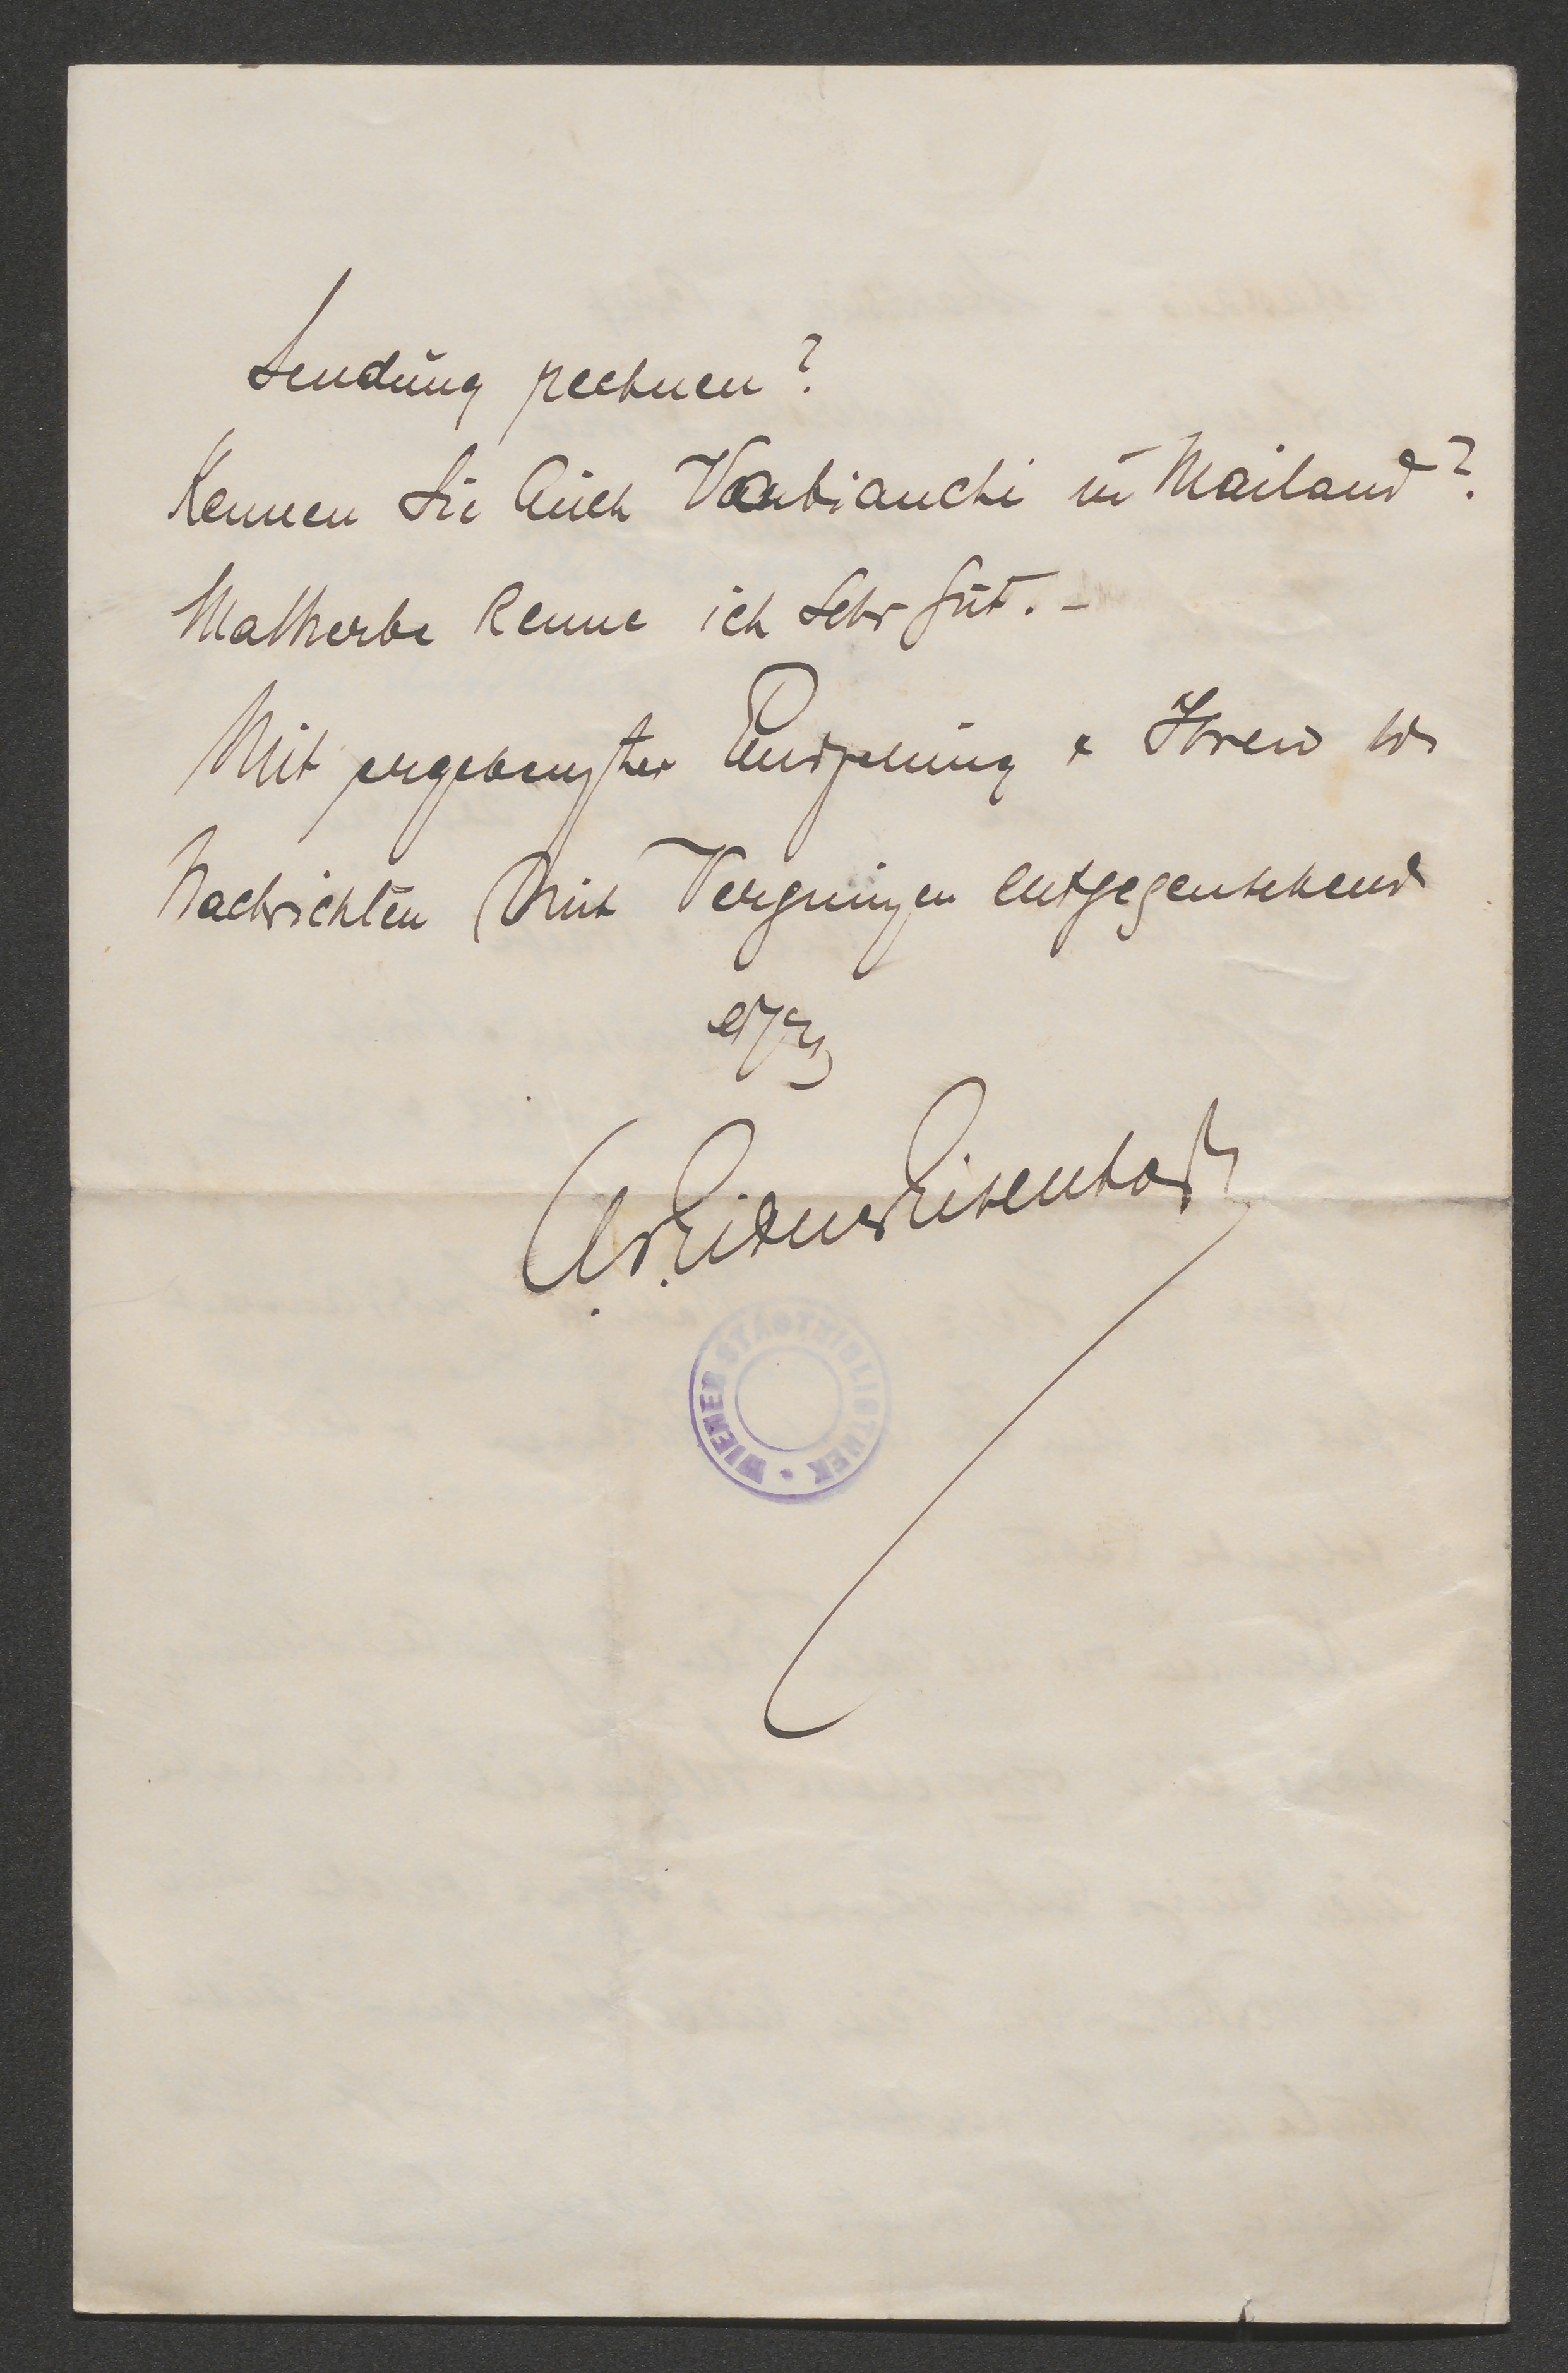 Sendung rechnen?
Kennen Sie auch Vanbianchi in Mailand?
Malherbe kenne ich sehr gut. -
Mit ergebenster Empfehlung & Ihren
Nachrichten mit Vergnügen entgegensehend
A. Eitner Eisenhart
WIENER STADTBIBLIOTHEK